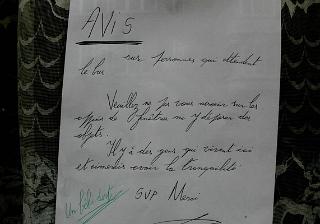 AVIS
aux personnes qui attendent
le bus
Veuillez ne pas vous asseoir sur les
appuis de fenêtres ni y déposer des
objets.
Il y a des gens qui vivent ici
et aimeraient avoir la tranquilité.
SVP Merci